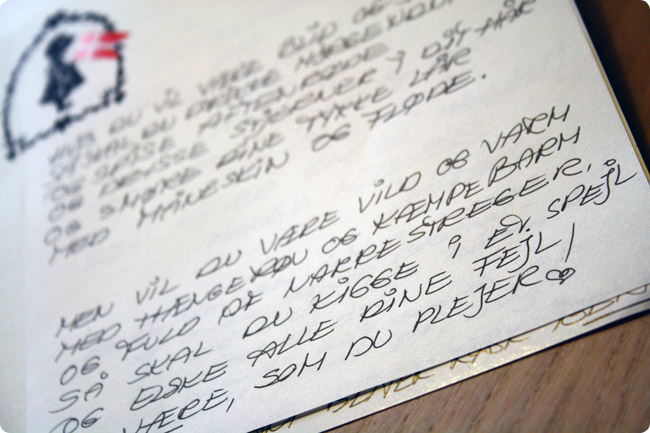 HVIS DU VIL VÆRE BLID OG
VI SKAL DU DRIKKE
OG SPISE AFTENRØDE
OG DRYSSE STJERNER I DIT HÅR
OG SMØRE DINE TYKKE LÅR
MED MÅNESKIN OG FLØDE.
MEN VIL DU VÆRE VILD OG VARM
MED HÆNGERØV OG KÆMPEBARM
OG FULD AF NARRESTREGER,
SÅ SKAL DU KIGGE I ET SPEJL
OG ELSKE ALLE DINE FEJL/
VÆRE, SOM DU PLEJER